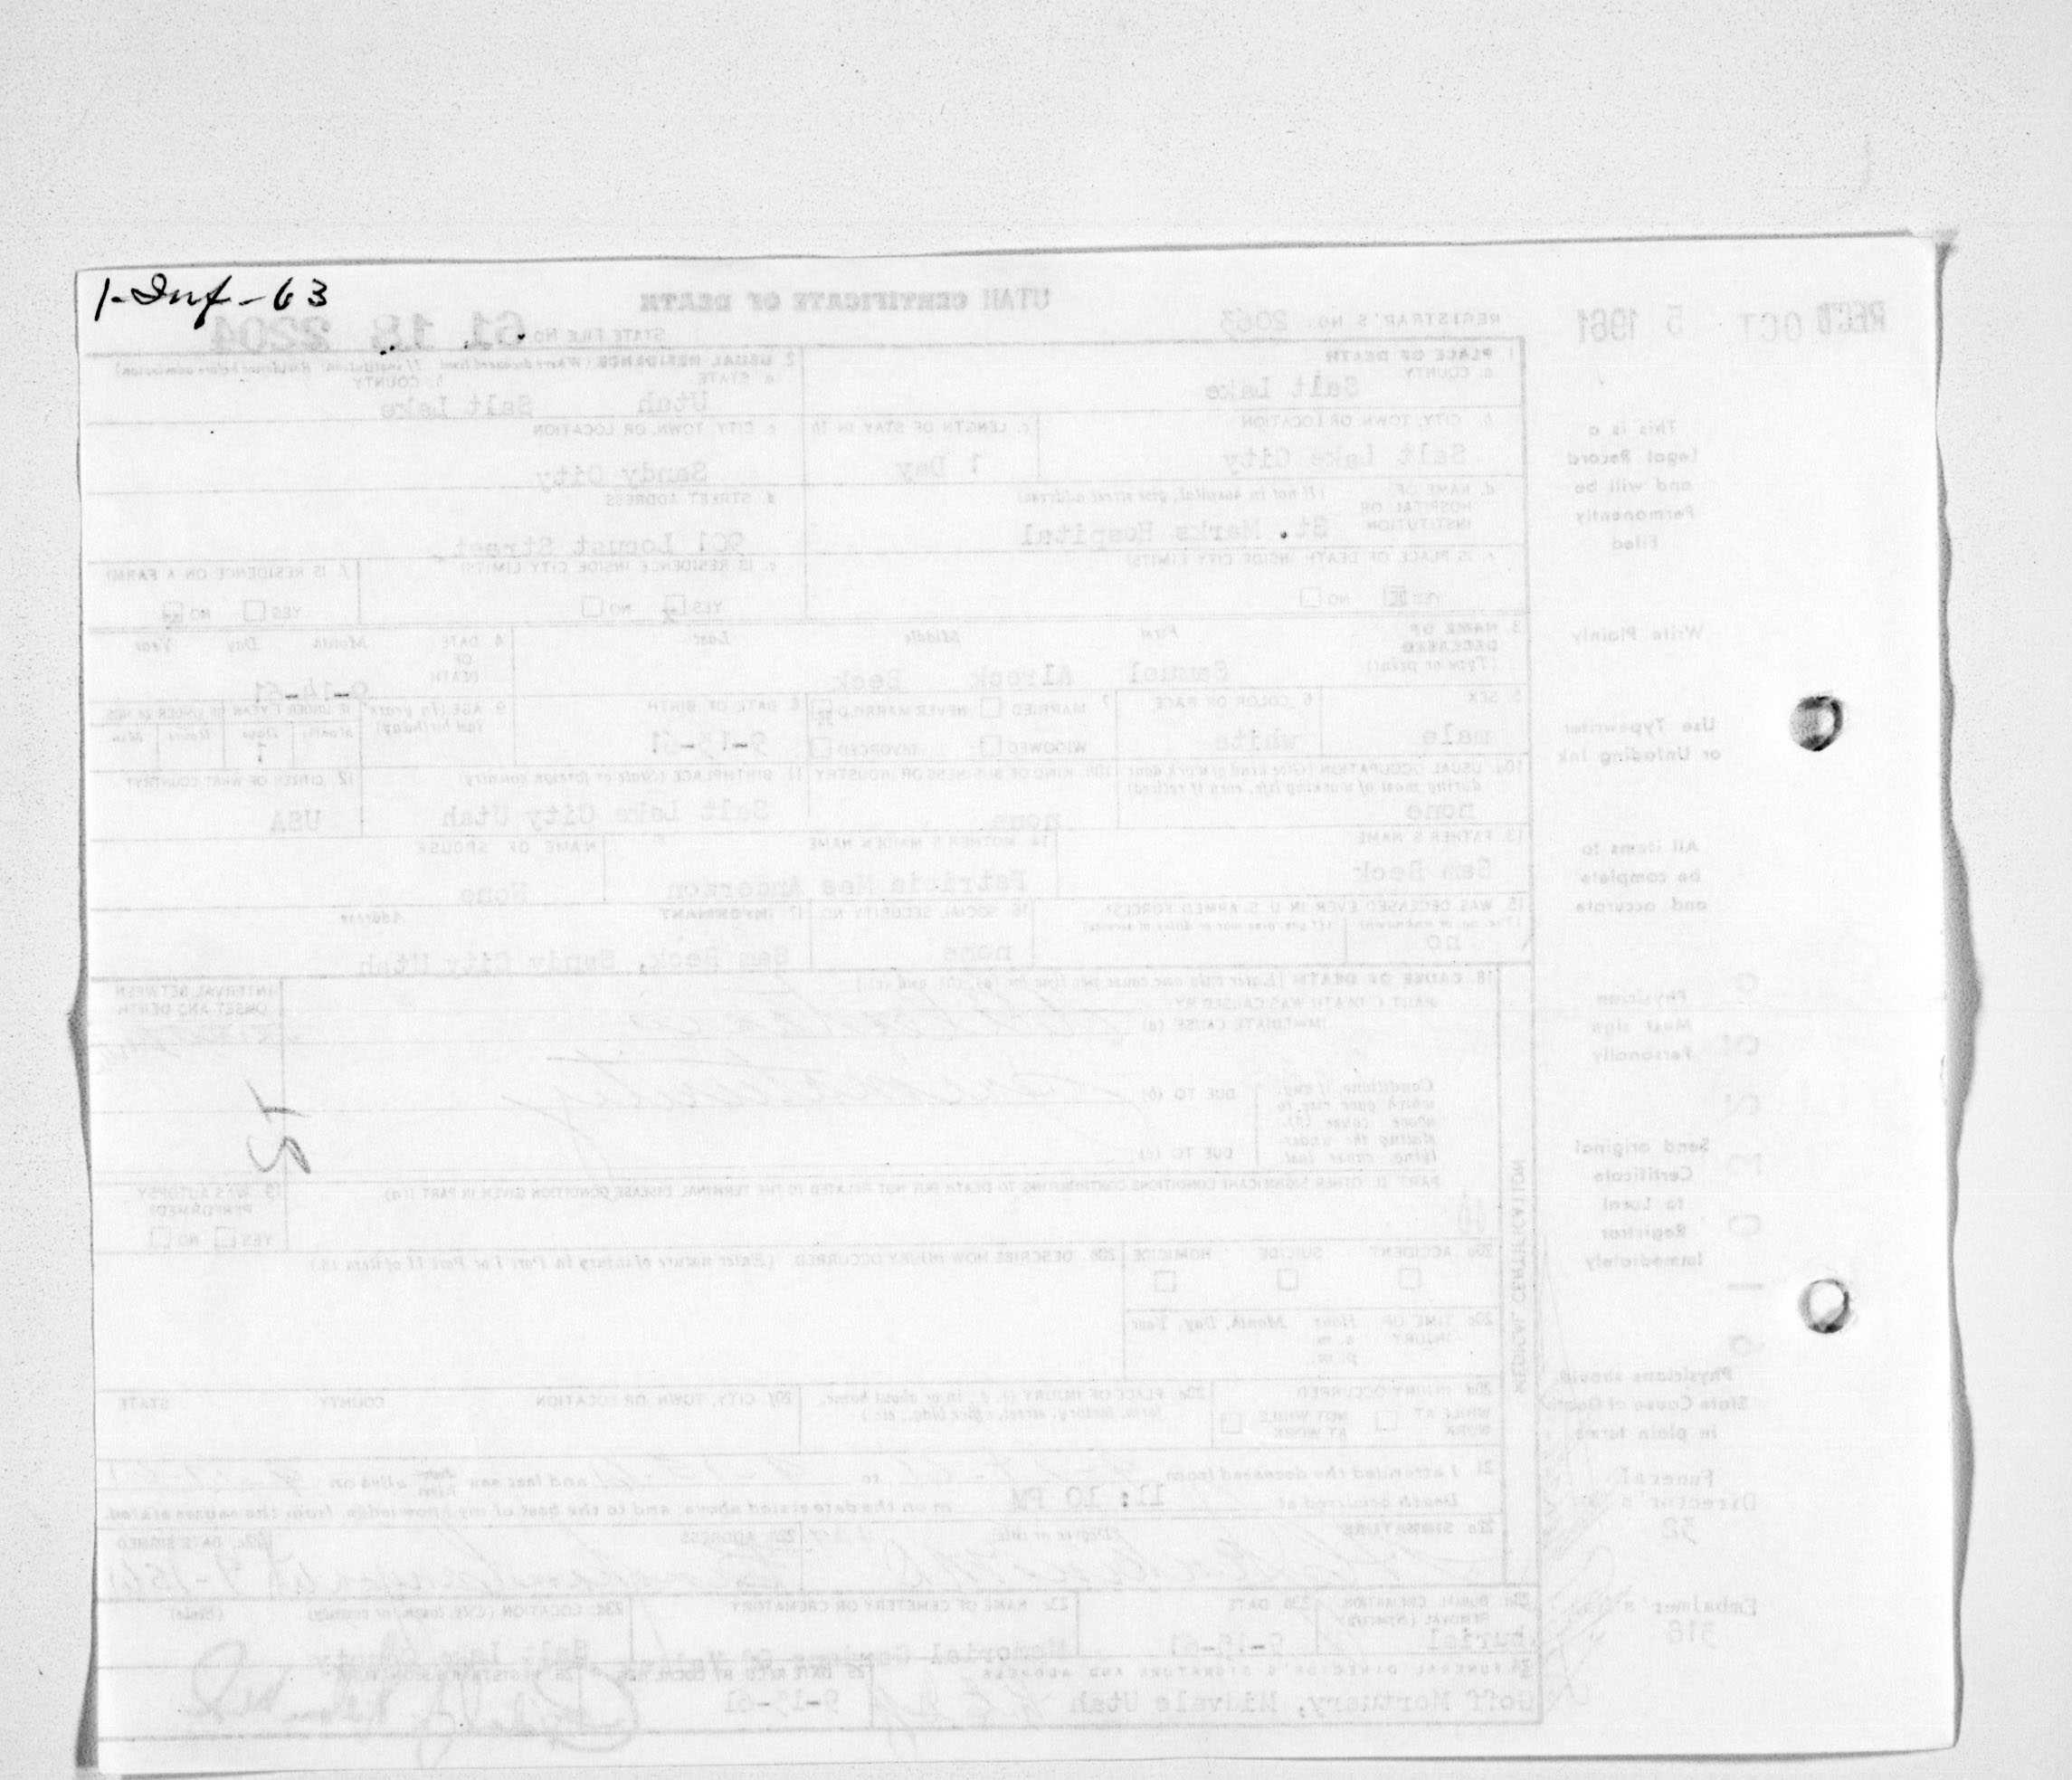 1-Inf-63
UTAH CERTIFICATE OF DEATH
REC'D OCT 5 1961
REGISTRAR'S NO. 2063
STATE FILE No. 61 18 2204
This is a
Legal Record
and will be
Permanently
Filed
Write Plainly
Use Typewriter
or Unfading Ink
All items to
be complete
and accurate
Physician
Must sign
Personally
Send original
Certificate
to Local
Registrar
Immediately
Physicians should
State Cause of Death
in plain terms
Funeral
Director's
32
Embalmer's
316
1. PLACE OF DEATH
a. COUNTY
Salt Lake
2. USUAL RESIDENCE (Where deceased lived. If institution: Residence before admission)
a. STATE b. COUNTY
Utah Salt Lake
b. CITY, TOWN, OR LOCATION c. LENGTH OF STAY IN 1b
Salt Lake City 1 Day
c. CITY, TOWN, OR LOCATION
Sandy City
d. NAME OF HOSPITAL OR INSTITUTION (If not in hospital, give street address)
St. Marks Hospital
d. STREET ADDRESS
901 Locust Street
e. IS PLACE OF DEATH INSIDE CITY LIMITS?
YES NO
e. IS RESIDENCE INSIDE CITY LIMITS?
YES NO
f. IS RESIDENCE ON A FARM?
YES NO
3. NAME OF DECEASED (Type or print) First Middle Last
Samuel Alrock Beck
4. DATE OF DEATH Month Day Year
9-14-61
5. SEX
male
6. COLOR OR RACE
white
7. MARRIED NEVER MARRIED
WIDOWED DIVORCED
8. DATE OF BIRTH
9-13-61
9. AGE (In years last birthday) IF UNDER 1 YEAR IF UNDER 24 HRS.
Months Days Hours Min.
1
10a. USUAL OCCUPATION (Give kind of work done during most of working life, even if retired)
none
10b. KIND OF BUSINESS OR INDUSTRY
none
11. BIRTHPLACE (State or foreign country)
Salt Lake City Utah
12. CITIZEN OF WHAT COUNTRY?
USA
13. FATHER'S NAME
Sam Beck
14. MOTHER'S MAIDEN NAME
Patricia Mae Anderson
NAME OF SPOUSE
None
15. WAS DECEASED EVER IN U. S. ARMED FORCES?
(Yes, no, or unknown) (If yes, give war or dates of service)
no
16. SOCIAL SECURITY NO.
none
17. INFORMANT Address
Sam Beck, Sandy City Utah
MEDICAL CERTIFICATION
18. CAUSE OF DEATH [Enter only one cause per line for (a), (b), and (c).]
PART I. DEATH WAS CAUSED BY:
IMMEDIATE CAUSE (a)
INTERVAL BETWEEN ONSET AND DEATH
Conditions, if any, which gave rise to above cause (a), stating the underlying cause last.
DUE TO (b) Prematurity
DUE TO (c)
PART II. OTHER SIGNIFICANT CONDITIONS CONTRIBUTING TO DEATH BUT NOT RELATED TO THE TERMINAL DISEASE CONDITION GIVEN IN PART I (a)
19. WAS AUTOPSY PERFORMED?
YES NO
20a. ACCIDENT SUICIDE HOMICIDE
20b. DESCRIBE HOW INJURY OCCURRED. (Enter nature of injury in Part I or Part II of item 18.)
20c. TIME OF INJURY Hour Month, Day, Year
a. m.
p. m.
20d. INJURY OCCURRED
WHILE AT WORK NOT WHILE AT WORK
20e. PLACE OF INJURY (e. g., in or about home, farm, factory, street, office bldg., etc.)
20f. CITY, TOWN, OR LOCATION COUNTY STATE
21. I attended the deceased from to and last saw her him alive on
Death occurred at 11:10 PM m on the date stated above; and to the best of my knowledge, from the causes stated.
22a. SIGNATURE (Degree or title)
22b. ADDRESS
22c. DATE SIGNED
23a. BURIAL, CREMATION, REMOVAL (Specify)
burial
23b. DATE
9-15-61
23c. NAME OF CEMETERY OR CREMATORY
Memorial Gardens Of Valley
23d. LOCATION (City, town, or county) (State)
Salt Lake County
24. FUNERAL DIRECTOR'S SIGNATURE AND ADDRESS
Goff Mortuary, Midvale Utah
25. DATE REC'D BY LOCAL REG.
9-15-61
26. REGISTRAR'S SIGNATURE